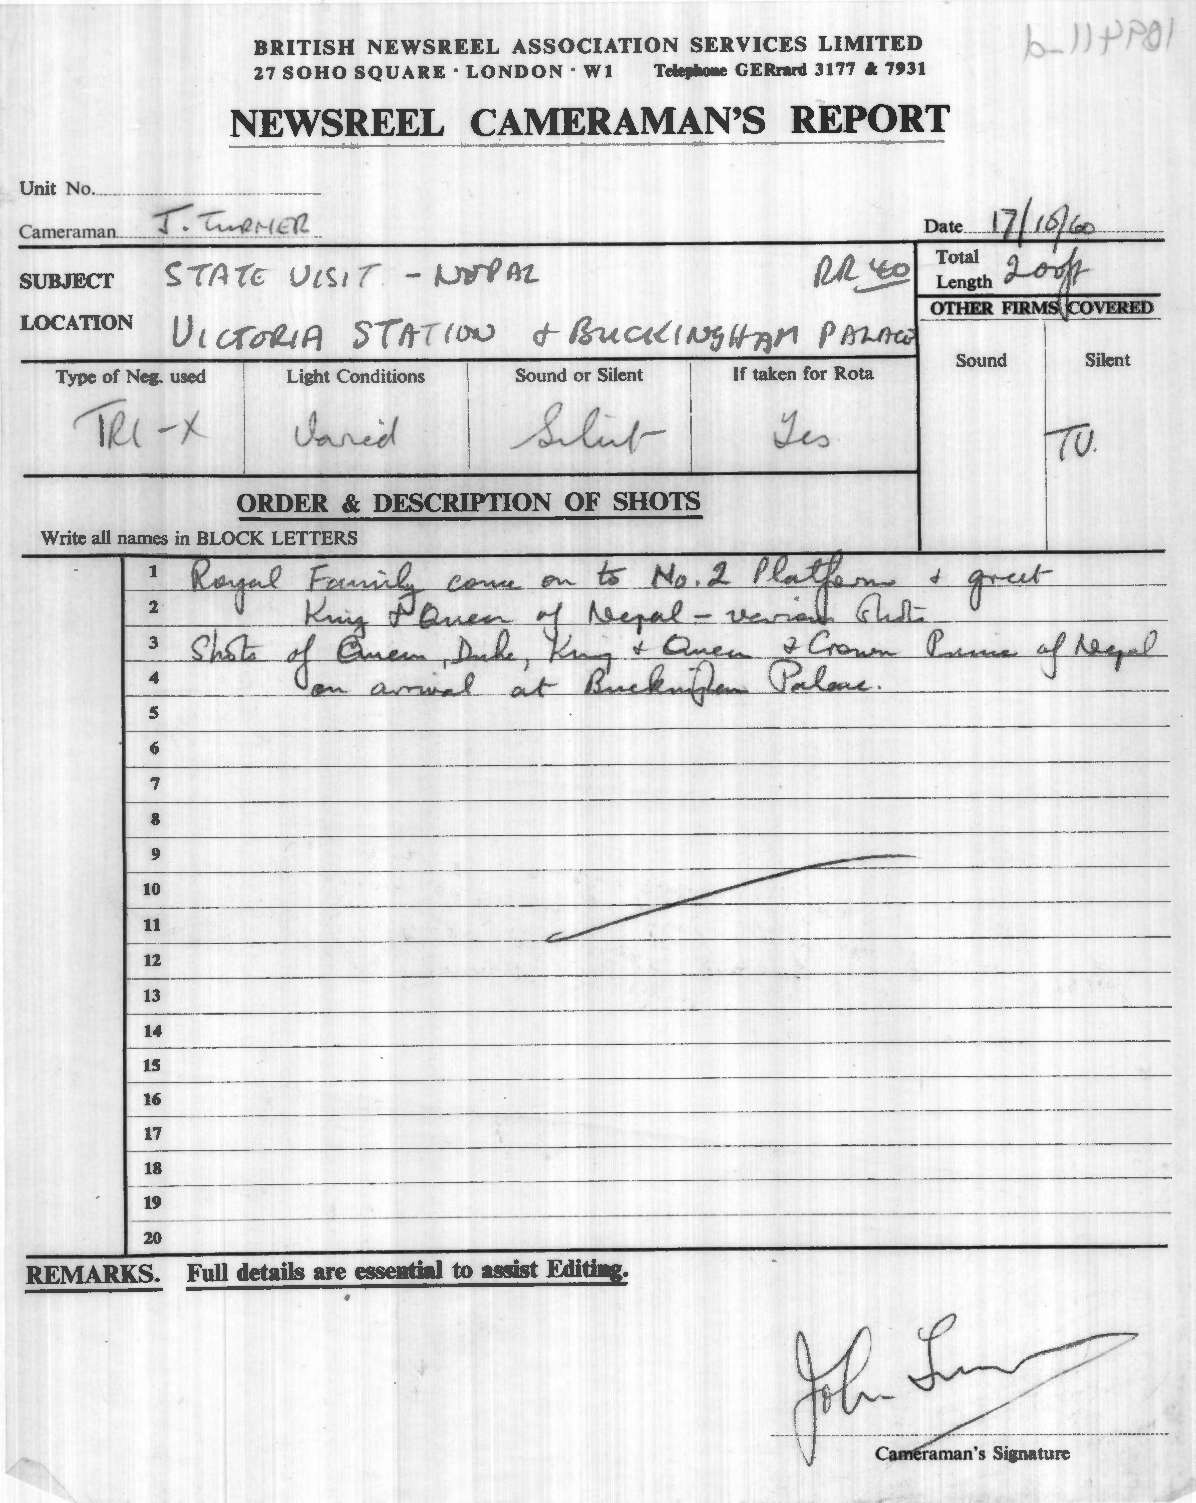 BRITISH NEWSREEL ASSOCIATION SERVICES LIMITED
27 SOHO SQUARE · LONDON · W1 Telephone GERrard 3177 & 7931
NEWSREEL CAMERAMAN'S REPORT
Unit No.
Cameraman J. TURNER
Date 17/10/60
SUBJECT STATE VISIT - NEPAL RR 40
Total Length 200ft
LOCATION VICTORIA STATION & BUCKINGHAM PALACE
OTHER FIRMS COVERED
Sound Silent
TV.
Type of Neg. used Light Conditions Sound or Silent If taken for Rota
TRI-X Varied Silent Yes
ORDER & DESCRIPTION OF SHOTS
Write all names in BLOCK LETTERS
1 Royal Family come on to No. 2 Platform & greet
2 King & Queen of Nepal - various shots
3 Shots of Queen, Duke, King & Queen & Crown Prince of Nepal
4 on arrival at Buckingham Palace.
5
6
7
8
9
10
11
12
13
14
15
16
17
18
19
20
REMARKS. Full details are essential to assist Editing.
John Turner
Cameraman's Signature